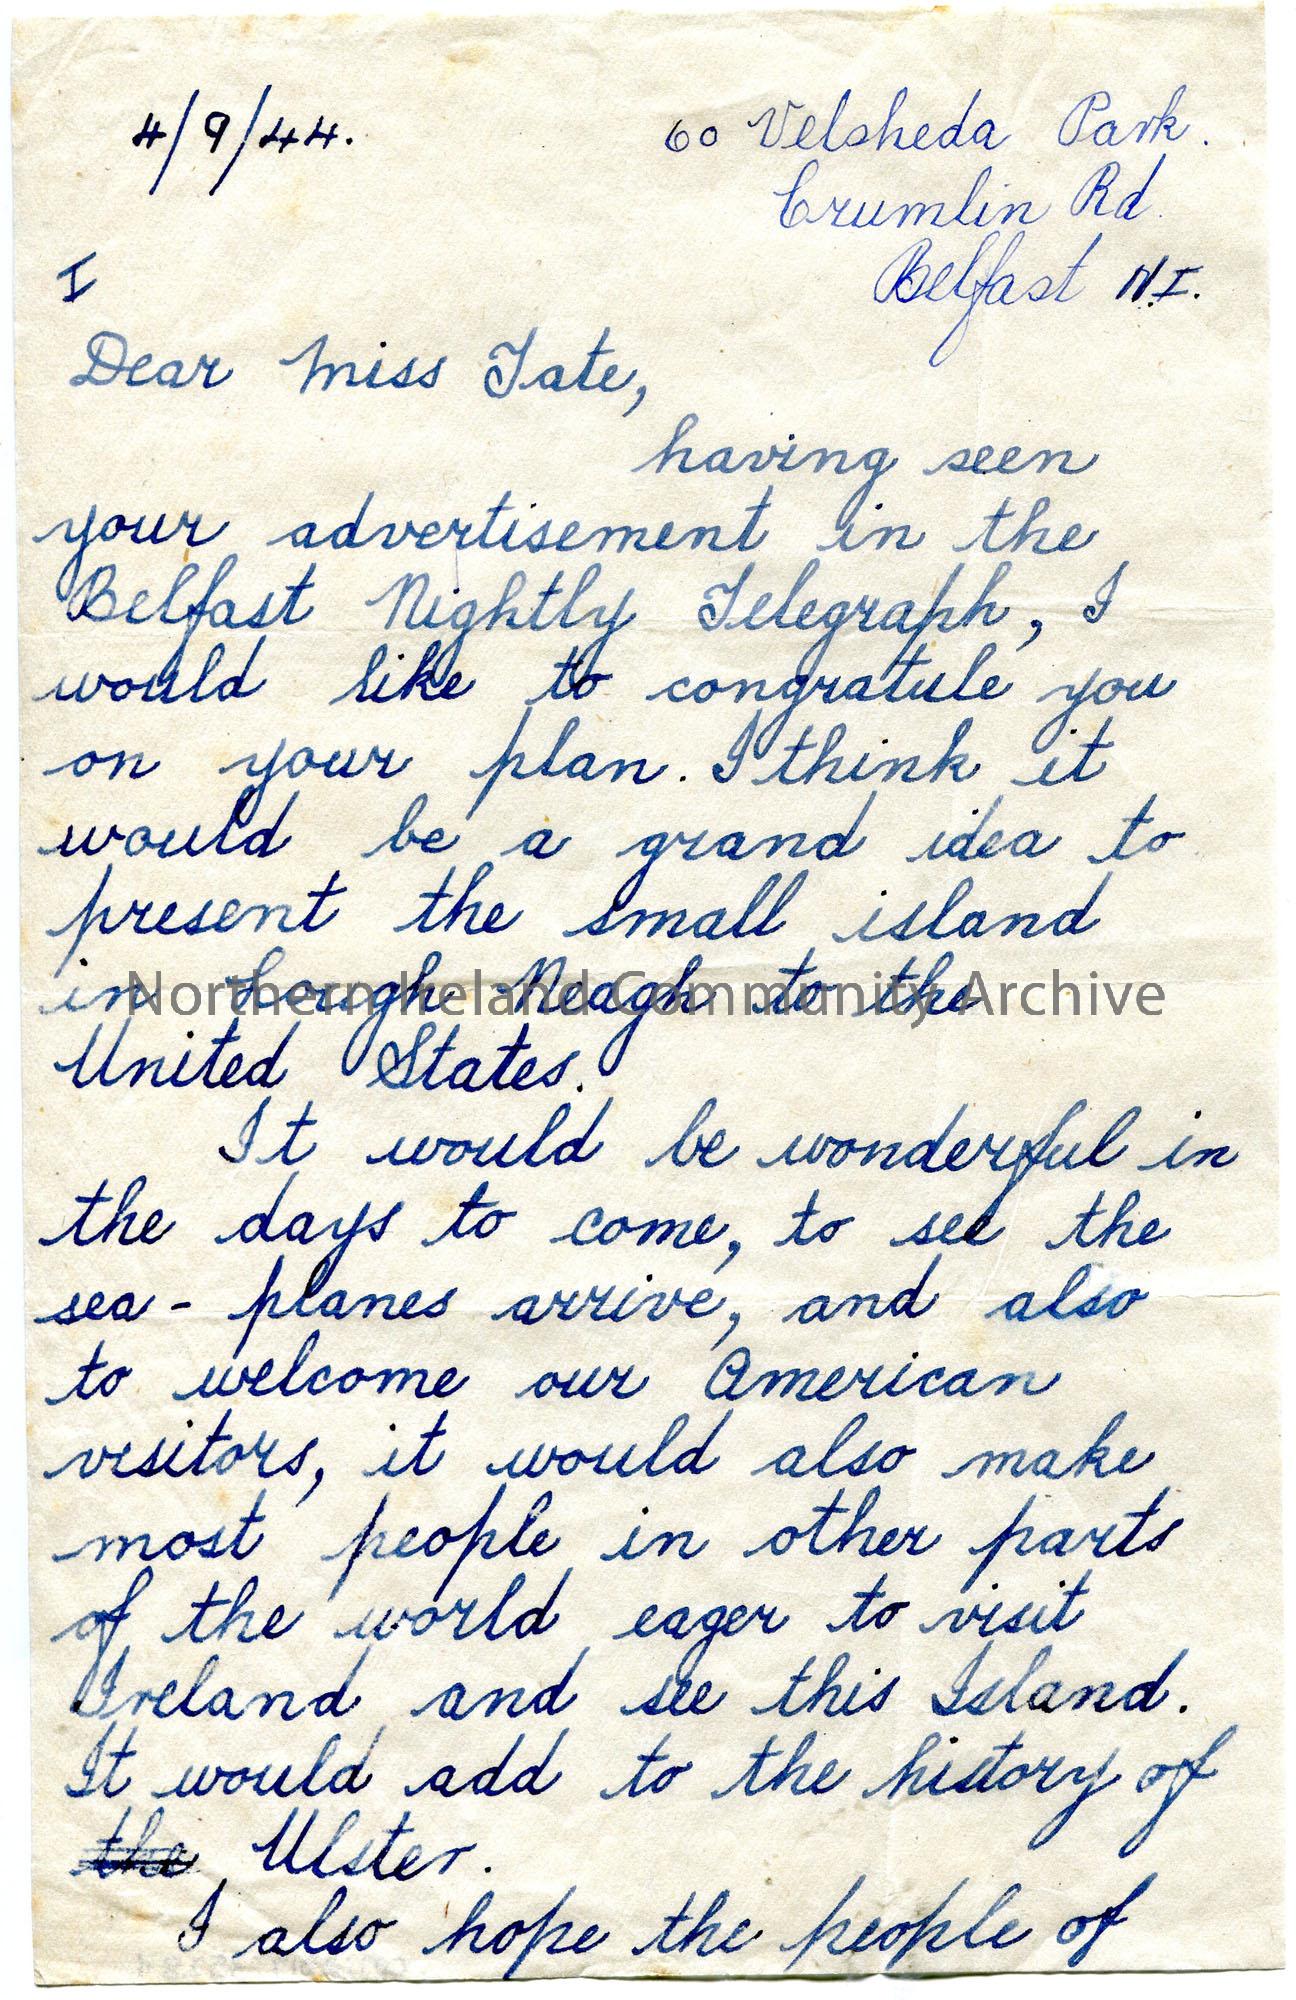 4/9/44.
60 Velsheda Park.
Crumlin Rd.
Belfast N.I.
I
Dear Miss Tate,
having seen
your advertisement in the
Belfast Nightly Telegraph, I
would like to congratule you
on your plan. I think it
would be a grand idea to
present the small island
in Lough Neagh to the
Northern Ireland Community Archive
United States.
It would be wonderful in
the days to come, to see the
sea - planes arrive, and also
to welcome our American
visitors, it would also make
most people in other parts
of the world eager to visit
Ireland and see this Island.
It would add to the history of
the Ulster.
I also hope the people of